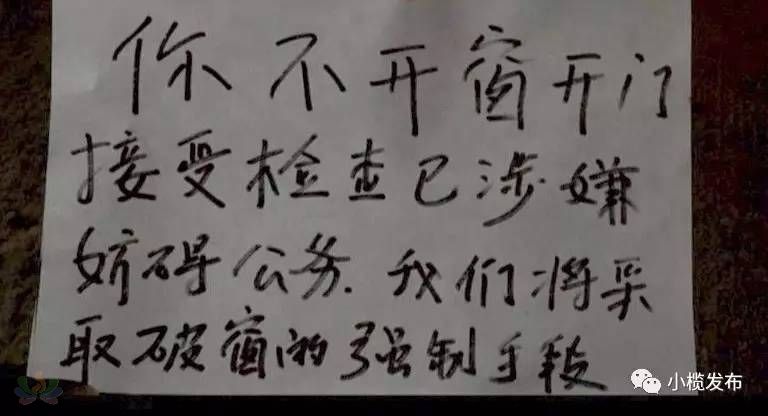 你不开窗开门
接受检查已涉嫌
妨碍公务.我们将采
取破窗的强制手段
小榄发布